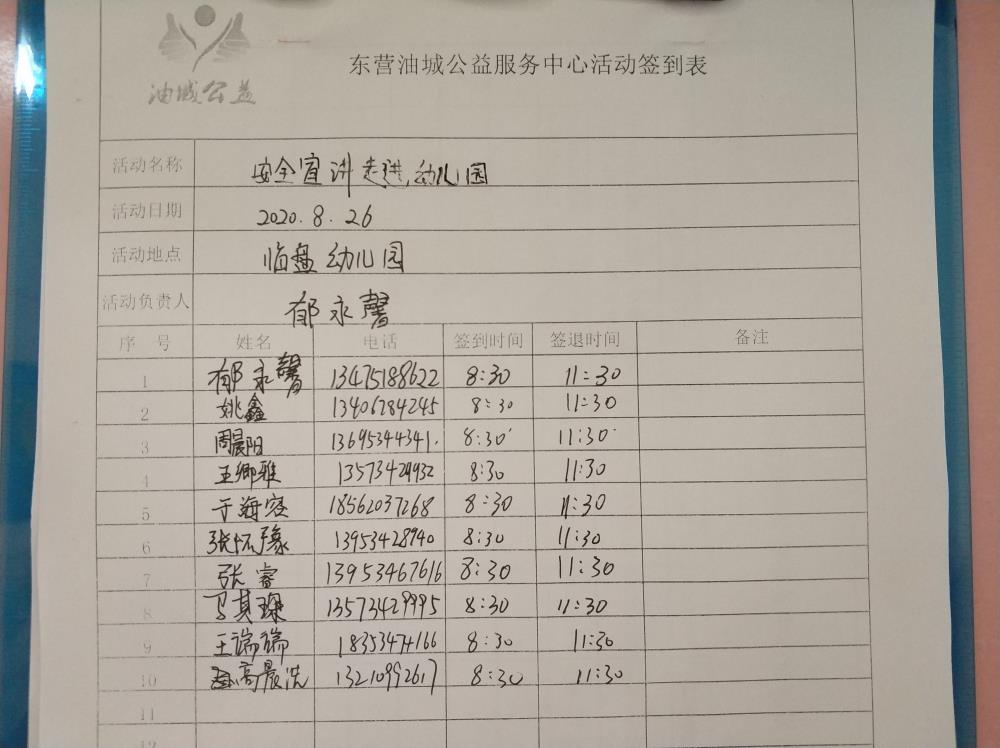 油城公益
东营油城公益服务中心活动签到表
活动名称 安全宣讲走进幼儿园
活动日期 2020.8.26
活动地点 临盘幼儿园
活动负责人 郁永馨
序 号 姓名 电话 签到时间 签退时间 备注
1 郁永馨 13475188622 8:30 11:30
2 姚鑫 13406284245 8:30 11:30
3 周晨阳 13695344341 8:30 11:30
4 王卿雅 13573429932 8:30 11:30
5 于海容 18562037268 8:30 11:30
6 张怀豫 13953428940 8:30 11:30
7 张睿 13953467616 8:30 11:30
8 马其琛 13573429995 8:30 11:30
9 王瑞瑞 8:30 11:30
10 高晨洗 13210992617 8:30 11:30
11
12